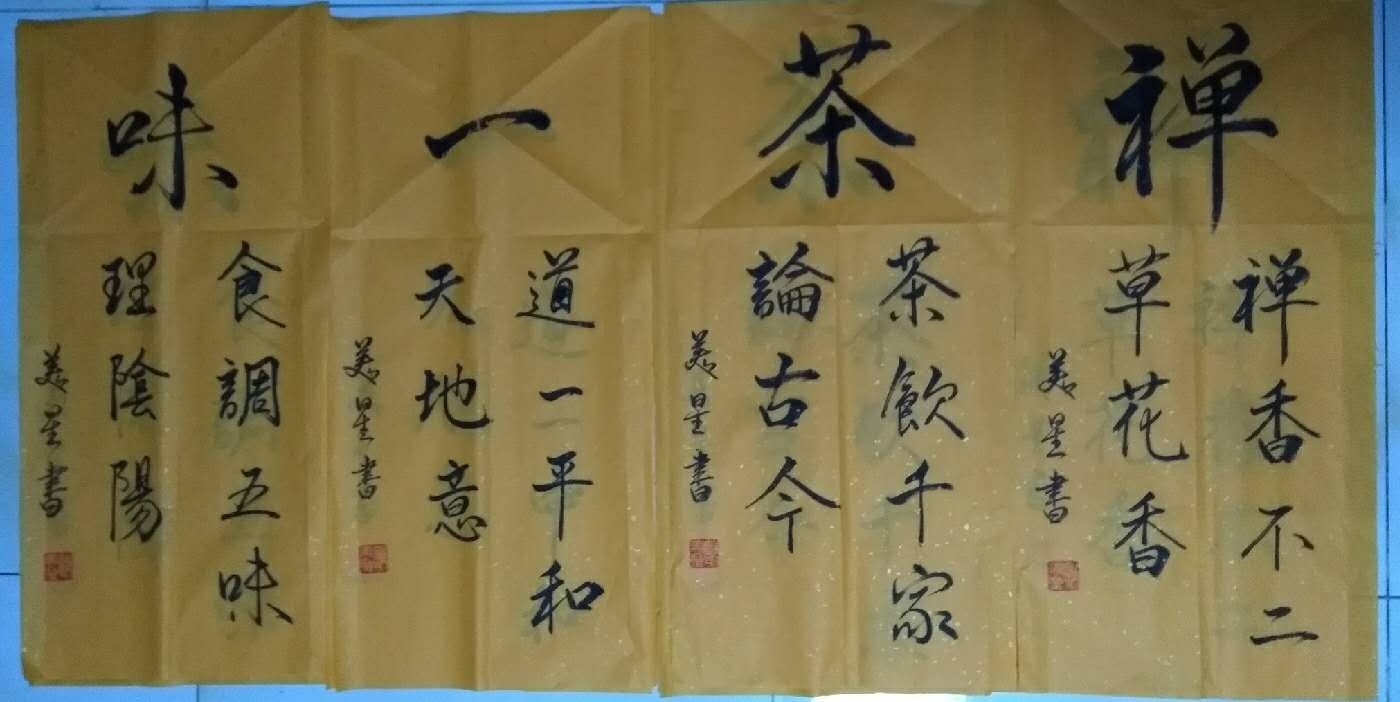 禅
禅香不二
草花香
美星书
茶
茶飲千家
論古今
美星書
一
道一一平和
天地意
美星書
味
食調五味
理陰陽
美星書